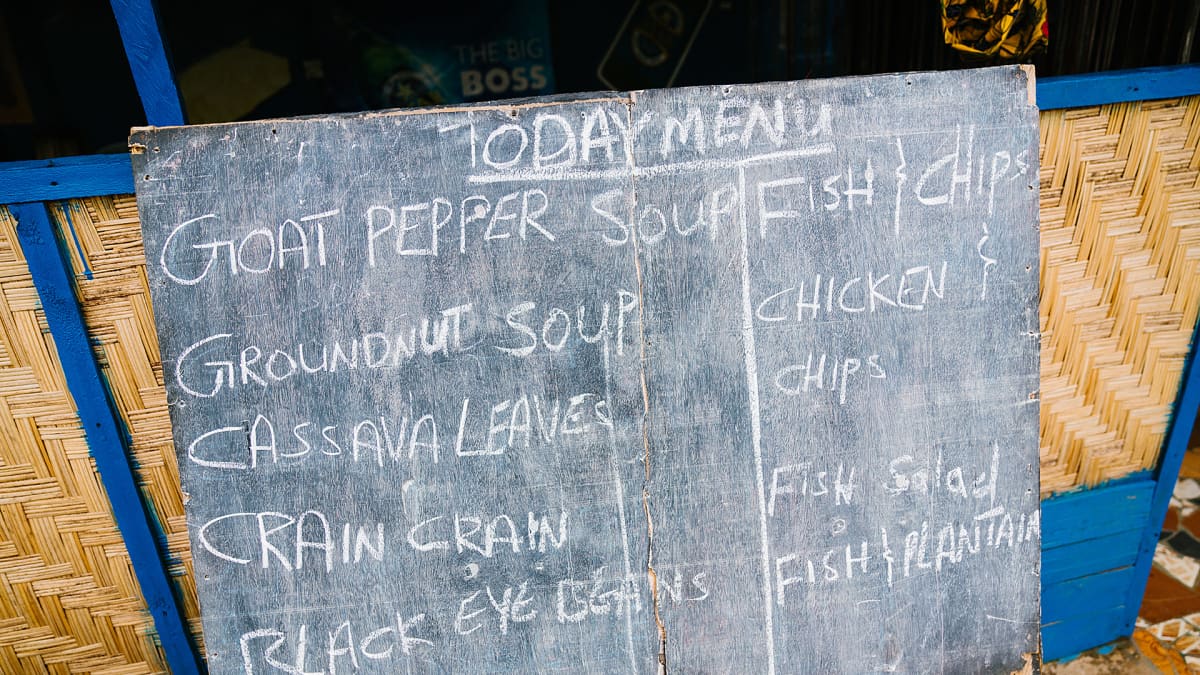 THE BIG
BOSS
TODAY MENU
GOAT PEPPER SOUP
GROUNDNUT SOUP
CASSAVA LEAVES
CRAIN CRAIN
BLACK EYE BEANS
FISH } CHIPS
CHICKEN }
CHIPS
FISH Salad
FISH } PLANTAIN